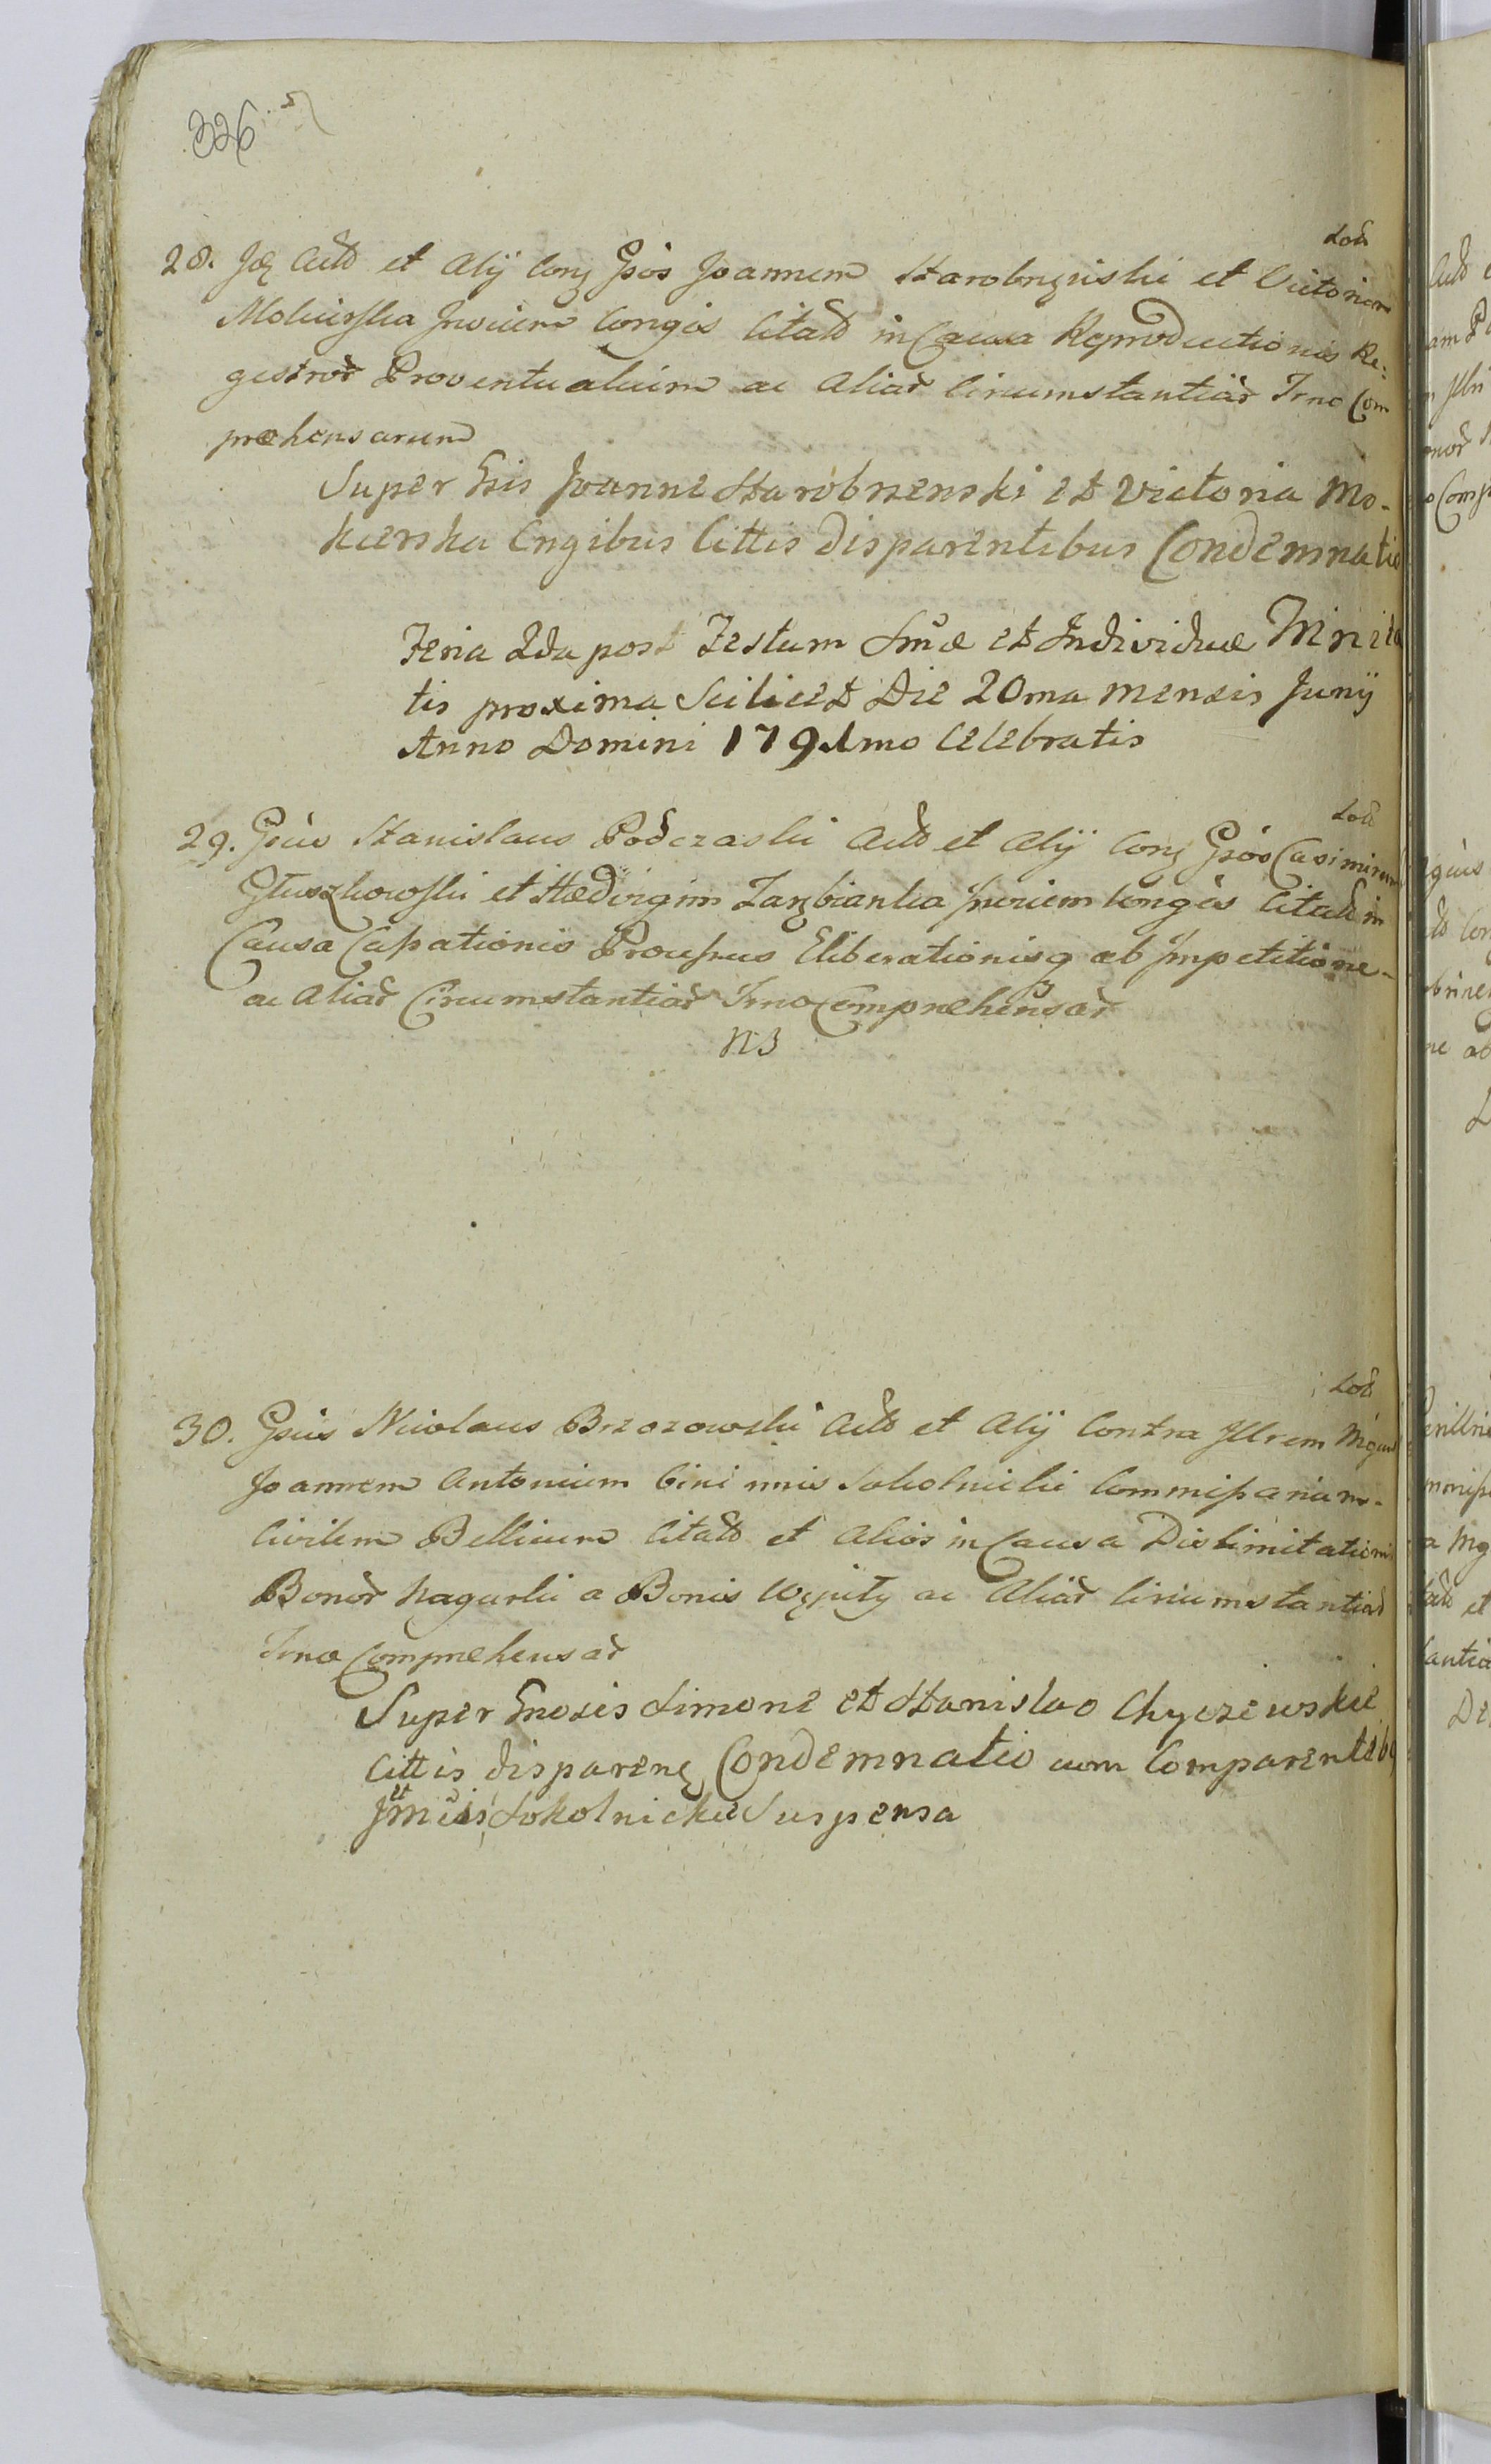 326
Lod
28. Jdz Actd et Alij Conz Gsos Joannem Starobrzeński et Victoriam
Mokierska Juniem Congis Citatd in Causa Reproductionis Re=
gestror Proventualium ac Aliar Circumstantiar Trno Com
præhensarum
Super Gsis Joanne Starobrzenski et Victoria Mo-
kierska Cngibus Cittis disparentibus Condemnatio
Feria 2da post Festum Smæ et Individuæ Trinita
tis proxima Scilicet Die 20ma mensis Junij
Anno Domini 1791mo Celebratis
Lod
29. Gsus Stanislaus Podczaski Actd et Alij Conz Gsos Casimirum
Głuszkowski et Hædvigim Juriem Congis Citatd in
Causa Cassationis Processus Eliberationisq ab Impetitione
ac Aliar Circumstantiar Trno Comprehensar
NB
Lod
30. Gsus Nicolaus Brzozowski Actd et Alij Contra Illrem Mgum
Joannem Antonium bini nnis Sokolnicki Commissarium
Civilem Bellicum Citatd et Alios in Causa Dislimitationis
Bonor Nagurki a Bonis ac Aliar Circumstantiar
Trno Comprehensar
Super Gnosis Simone et Stanislao Chyczewskie
Cittis disparenz Condemnatio cum Comparentibq
et
Sokolnickie Suspensa